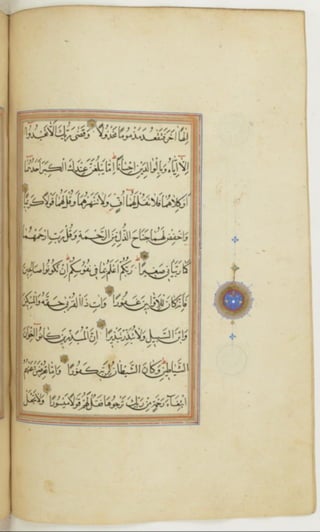 إلها آخر فتقعد مذموما مخذولا وقضى ربك ألا تعبدوا
إلا إياه وبالوالدين إحسانا إما يبلغن عندك الكبر أحدهما
أو كلاهما فلا تقل لهما أف ولا تنهرهما وقل لهما قولا كريما
واخفض لهما جناح الذل من الرحمة وقل رب ارحمهما
كما ربياني صغيرا ربكم أعلم بما في نفوسكم إن تكونوا صالحين
فإنه كان للأوابين غفورا وآت ذا القربى حقه والمسكين
وابن السبيل ولا تبذر تبذيرا إن المبذرين كانوا إخوان
الشياطين وكان الشيطان لربه كفورا وإما تعرضن عنهم
ابتغاء رحمة من ربك ترجوها فقل لهم قولا ميسورا ولا تجعل